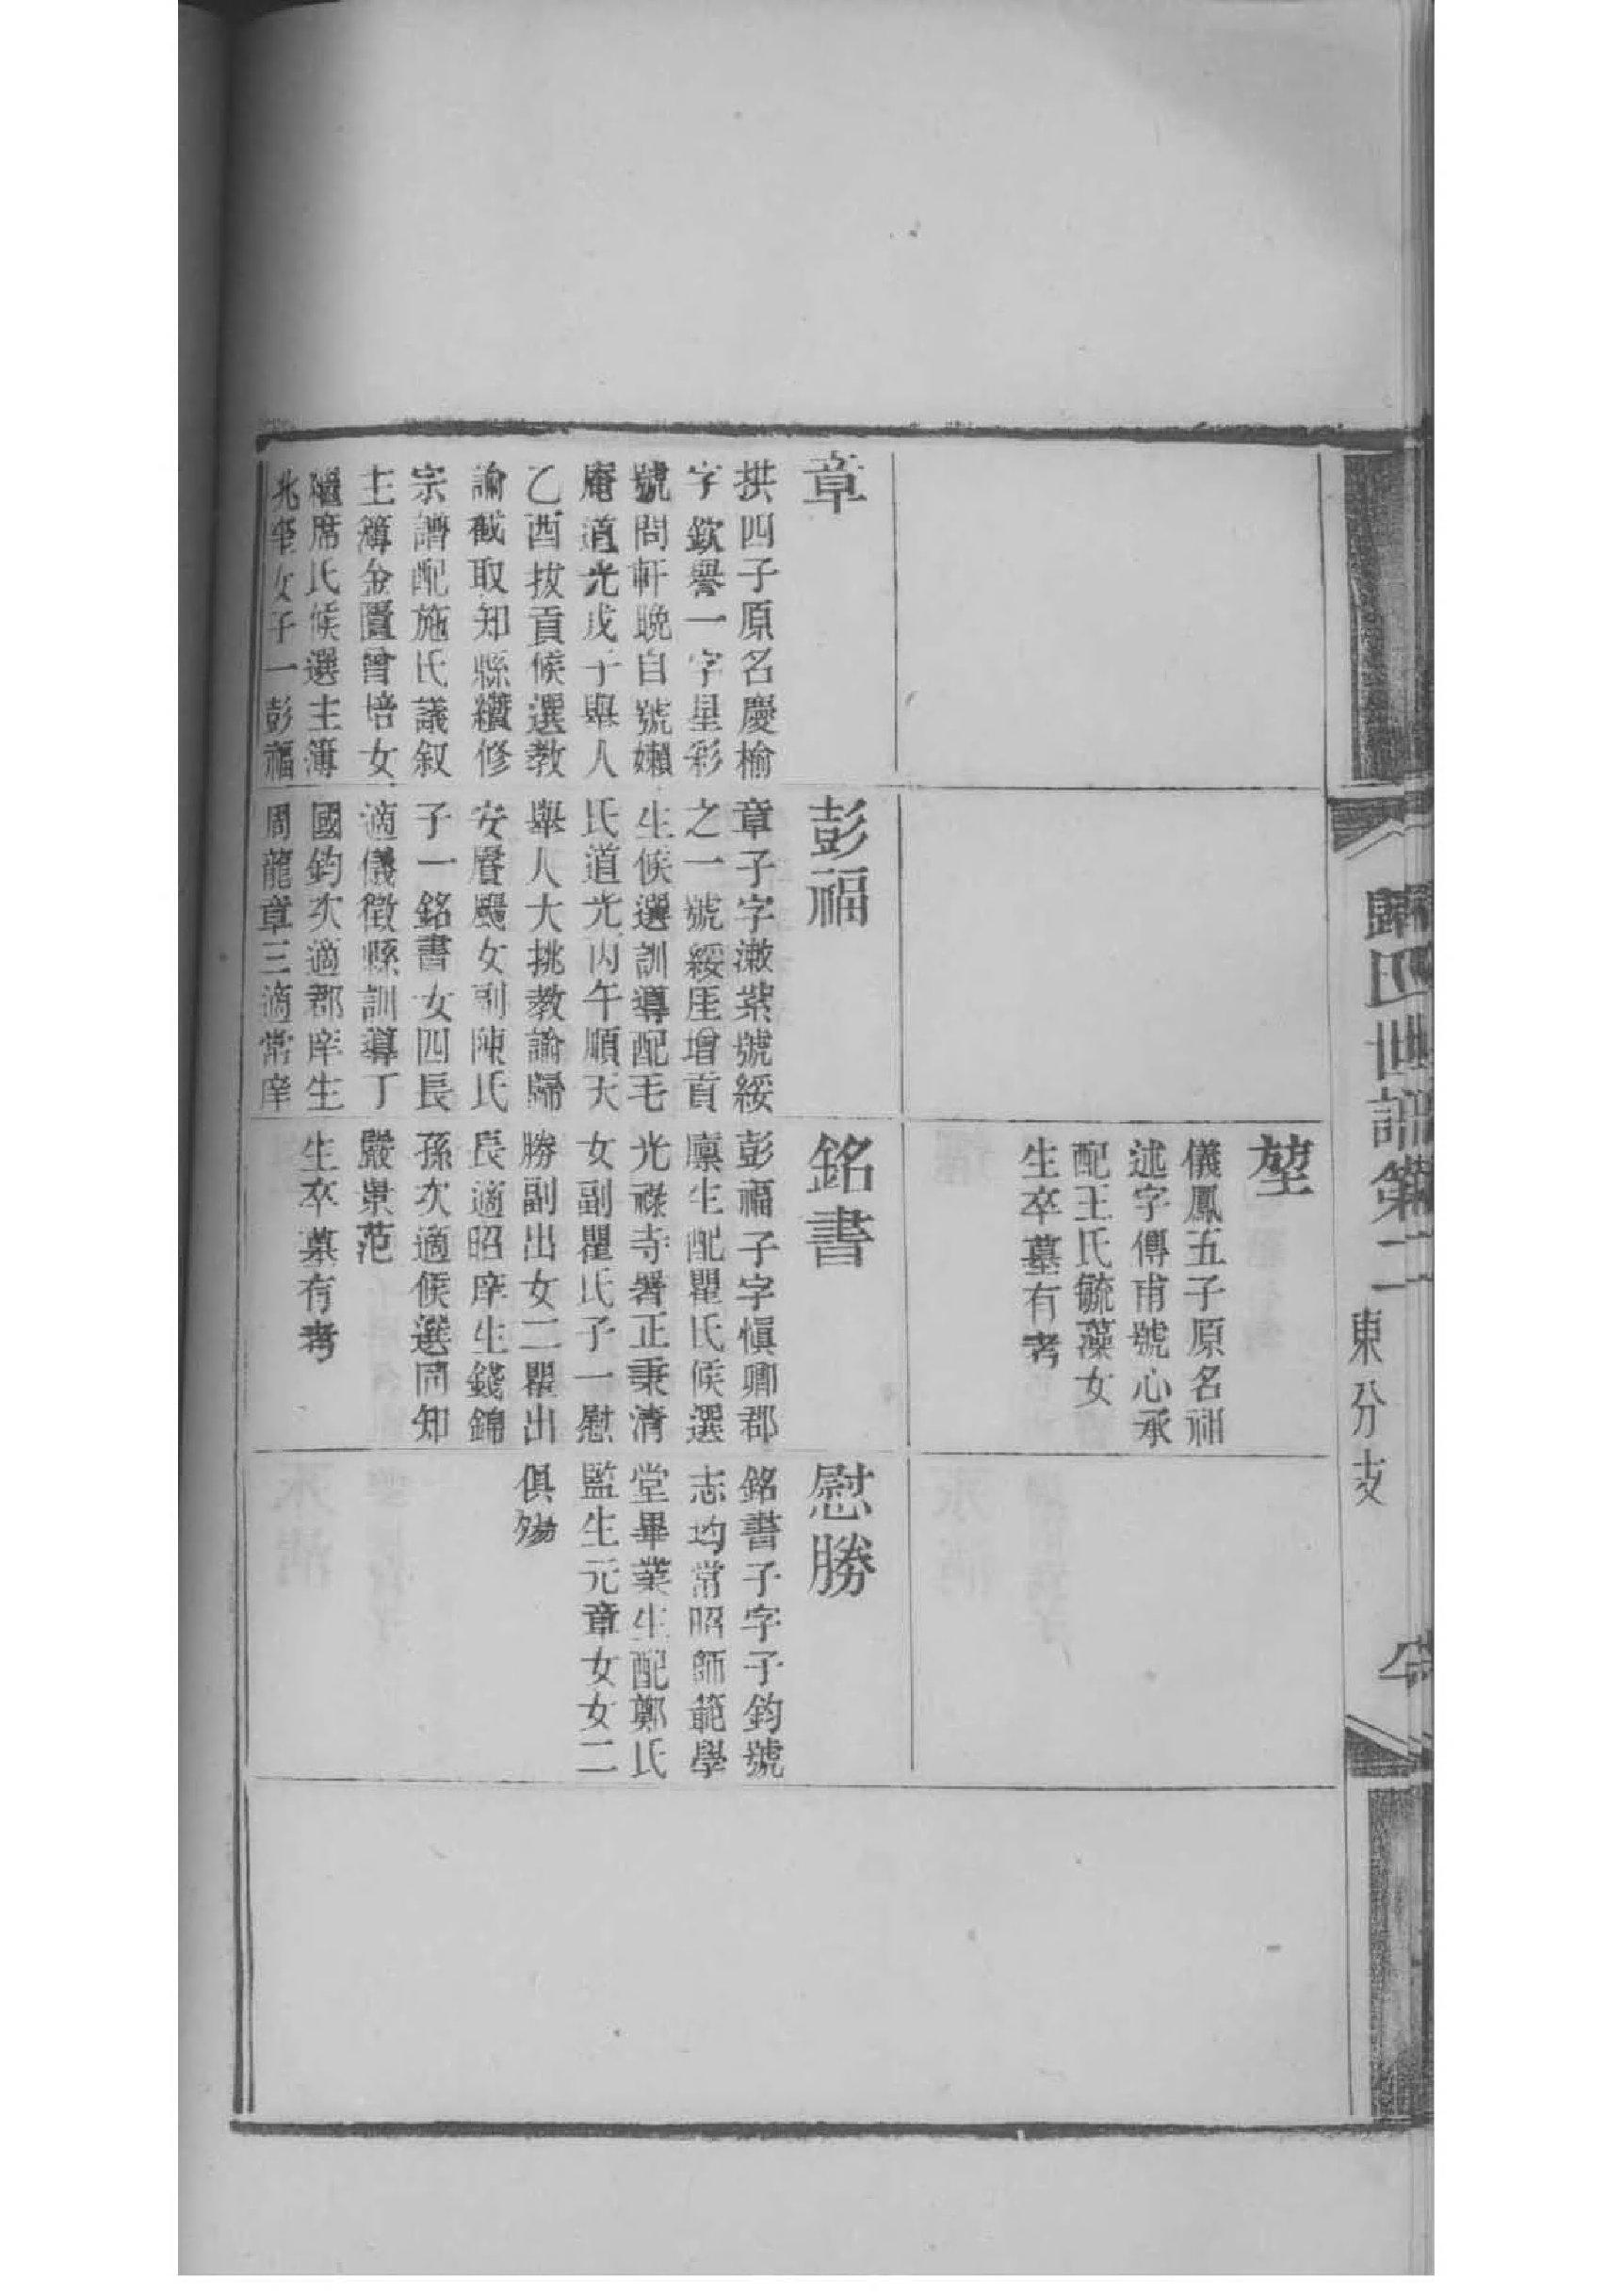 歸氏世譜第二
東分支
堃
儀鳳五子原名祖
述字傳甫號心承
配王氏毓藻女
生卒墓有考
章
拱四子原名慶榆
字欽譽一字星彩
號問軒晚自號嬾
庵道光戊子舉人
乙酉拔貢候選教
諭截取知縣纘修
宗譜配施氏議叙
主簿金匱曾培女
繼席氏候選主簿
兆肇女子一彭福
彭福
章子字漱紫號綏
之一號綏厓增貢
生候選訓導配毛
氏道光丙午順天
舉人大挑教諭歸
安賡颺女副陳氏
子一銘書女四長
適儀徵縣訓導丁
國鈞次適郡庠生
周龍章三適常庠
銘書
彭福子字愼卿郡
廪生配瞿氏候選
光祿寺署正秉清
女副瞿氏子一慰
勝副出女二瞿出
長適昭庠生錢錦
孫次適候選同知
嚴景范
生卒墓有考
慰勝
銘書子字子鈞號
志均常昭師範學
堂畢業生配鄭氏
監生元章女女二
俱殤